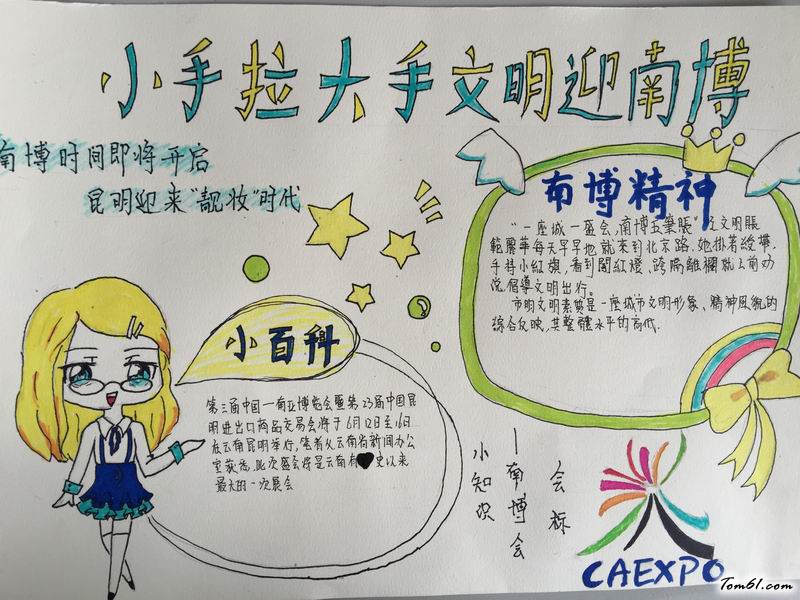 小手拉大手文明迎南博
南博时间即将开启
昆明迎来"靓妆"时代
南博精神
"一座城一盛会,南博五
範麗華每天早早地就來到北京路,她掛著綬帶,
手持小紅旗,看到闖紅燈、跨隔離欄就上前劝
说,倡導文明出行。
市明文明素質是一座城市文明形象、精神風貌的
綜合反映,其整體水平的高低.
小百科
第三届中国—南亚博览会暨第23届中国昆
明进出口商品交易会将于6月12日至16日
在云南昆明举行,笔者从云南省新闻办公
室获悉,此次盛会将是云南有史以来
最大的一次展会
小知识
—南博会
会标
CAEXPO
Tom61.com